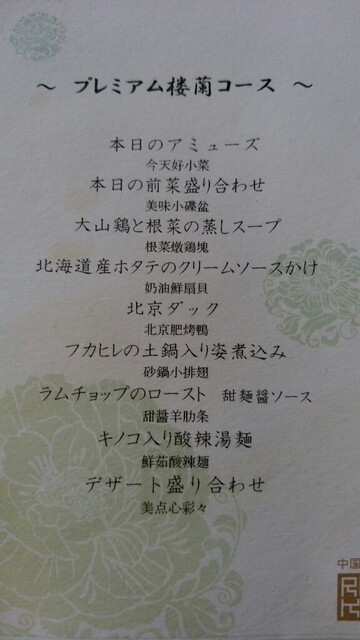 ～ プレミアム楼蘭コース ～
本日のアミューズ
今天好小菜
本日の前菜盛り合わせ
美味小碟盆
大山鶏と根菜の蒸しスープ
根菜燉鶏塊
北海道産ホタテのクリームソースかけ
奶油鮮扇貝
北京ダック
北京肥烤鴨
フカヒレの土鍋入り姿煮込み
砂鍋小排翅
ラムチョップのロースト 甜麺醤ソース
甜醤羊肋条
キノコ入り酸辣湯麺
鮮茹酸辣麺
デザート盛り合わせ
美点心彩々
中国